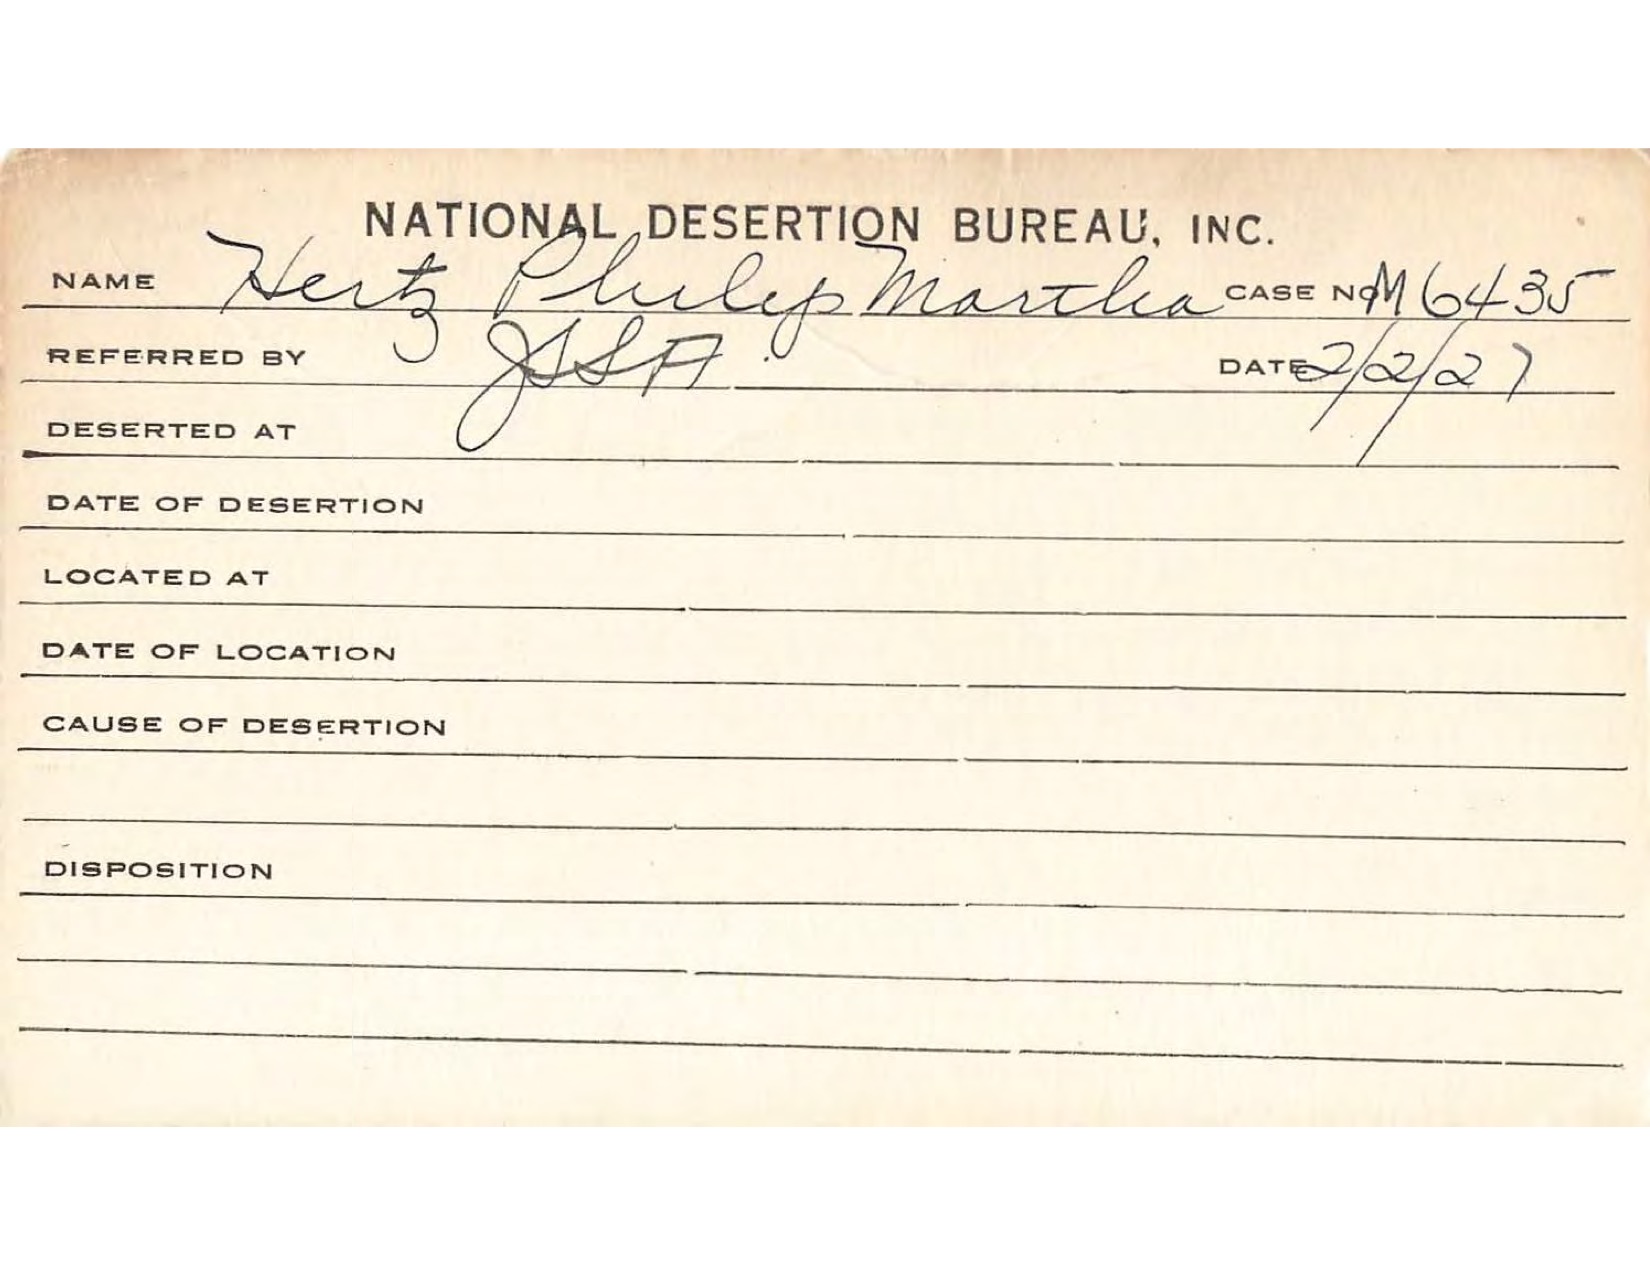 NATIONAL DESERTION BUREAU, INC.
NAME Hertz Philip Martha CASE NO. M6435
REFERRED BY JSSA DATE 2/2/27
DESERTED AT
DATE OF DESERTION
LOCATED AT
DATE OF LOCATION
CAUSE OF DESERTION
DISPOSITION